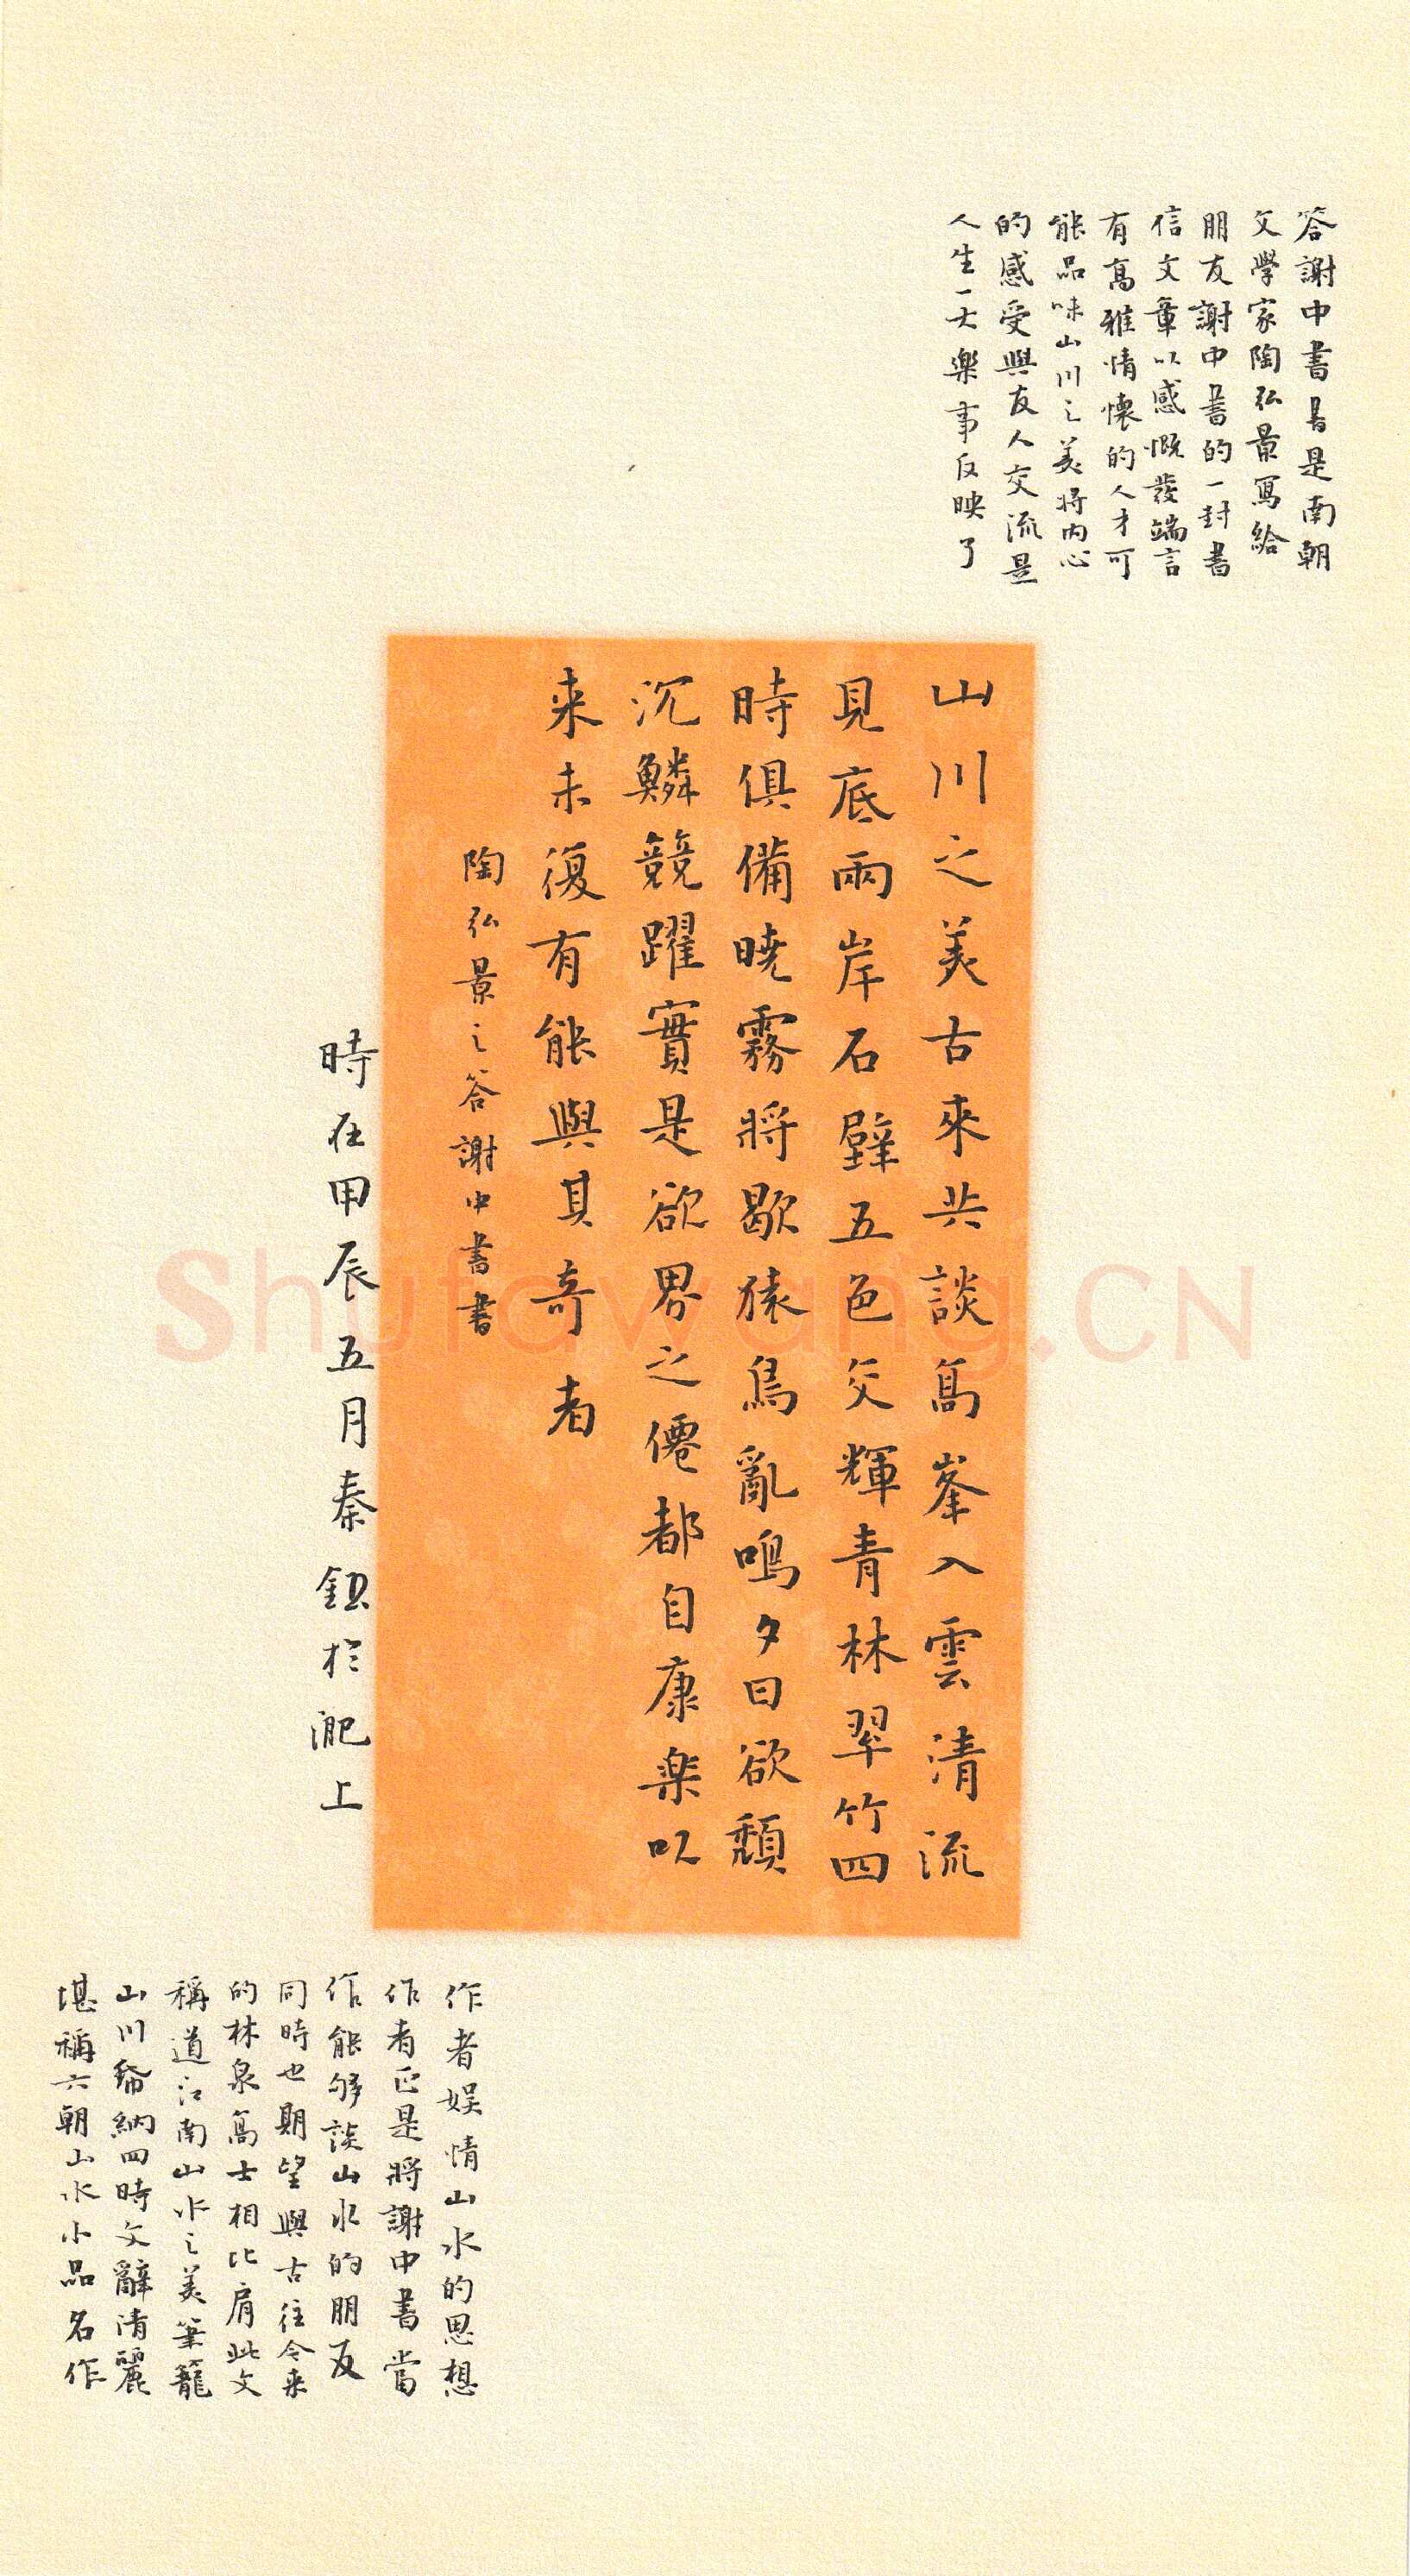 答謝中書書是南朝
文學家陶弘景寫給
朋友謝中書的一封書
信文章以感慨發端言
有高雅情懷的人才可
能品味山川之美將內心
的感受與友人交流是
人生一大樂事反映了
山川之美古來共談高峯入雲清流
見底兩岸石壁五色交輝青林翠竹四
時俱備曉霧將歇猿鳥亂鳴夕日欲頹
沉鱗競躍實是欲界之僊都自康樂以
来未復有能與其奇者
陶弘景之答謝中書書
時在甲辰五月秦鈕於淝上
作者娛情山水的思想
作者正是將謝中書當
作能够談山水的朋友
同時也期望與古往今来
的林泉高士相比肩此文
稱道江南山水之美筆籠
山川紙納四時文辭清麗
堪稱六朝山水小品名作
Shufawang.CN